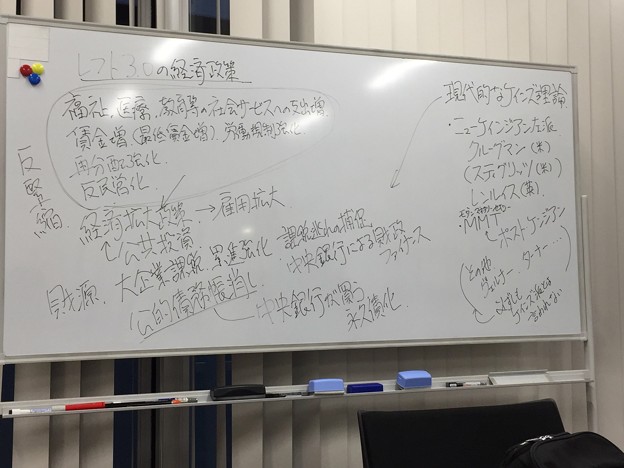 レフト3.0の経済政策
福祉、医療、教育等の社会サービスへの支出増
賃金増(最低賃金増)、労働規制強化
再分配強化
反民営化
反緊縮
経済拡大政策→雇用拡大
公共投資
財源
大企業課税、累進強化
課税逃れの捕捉
中央銀行による財政ファイナンス
公的債務帳消し
中央銀行が買う
永久債化
現代的なケインズ理論
・ニューケインジアン左派
クルーグマン(米)
(スティグリッツ(米)
レンルイス(英)
・MMT
ポストケインジアン
その他
ヴェルナー、ターナー…
必ずしも
ケインズ派とは
言われない